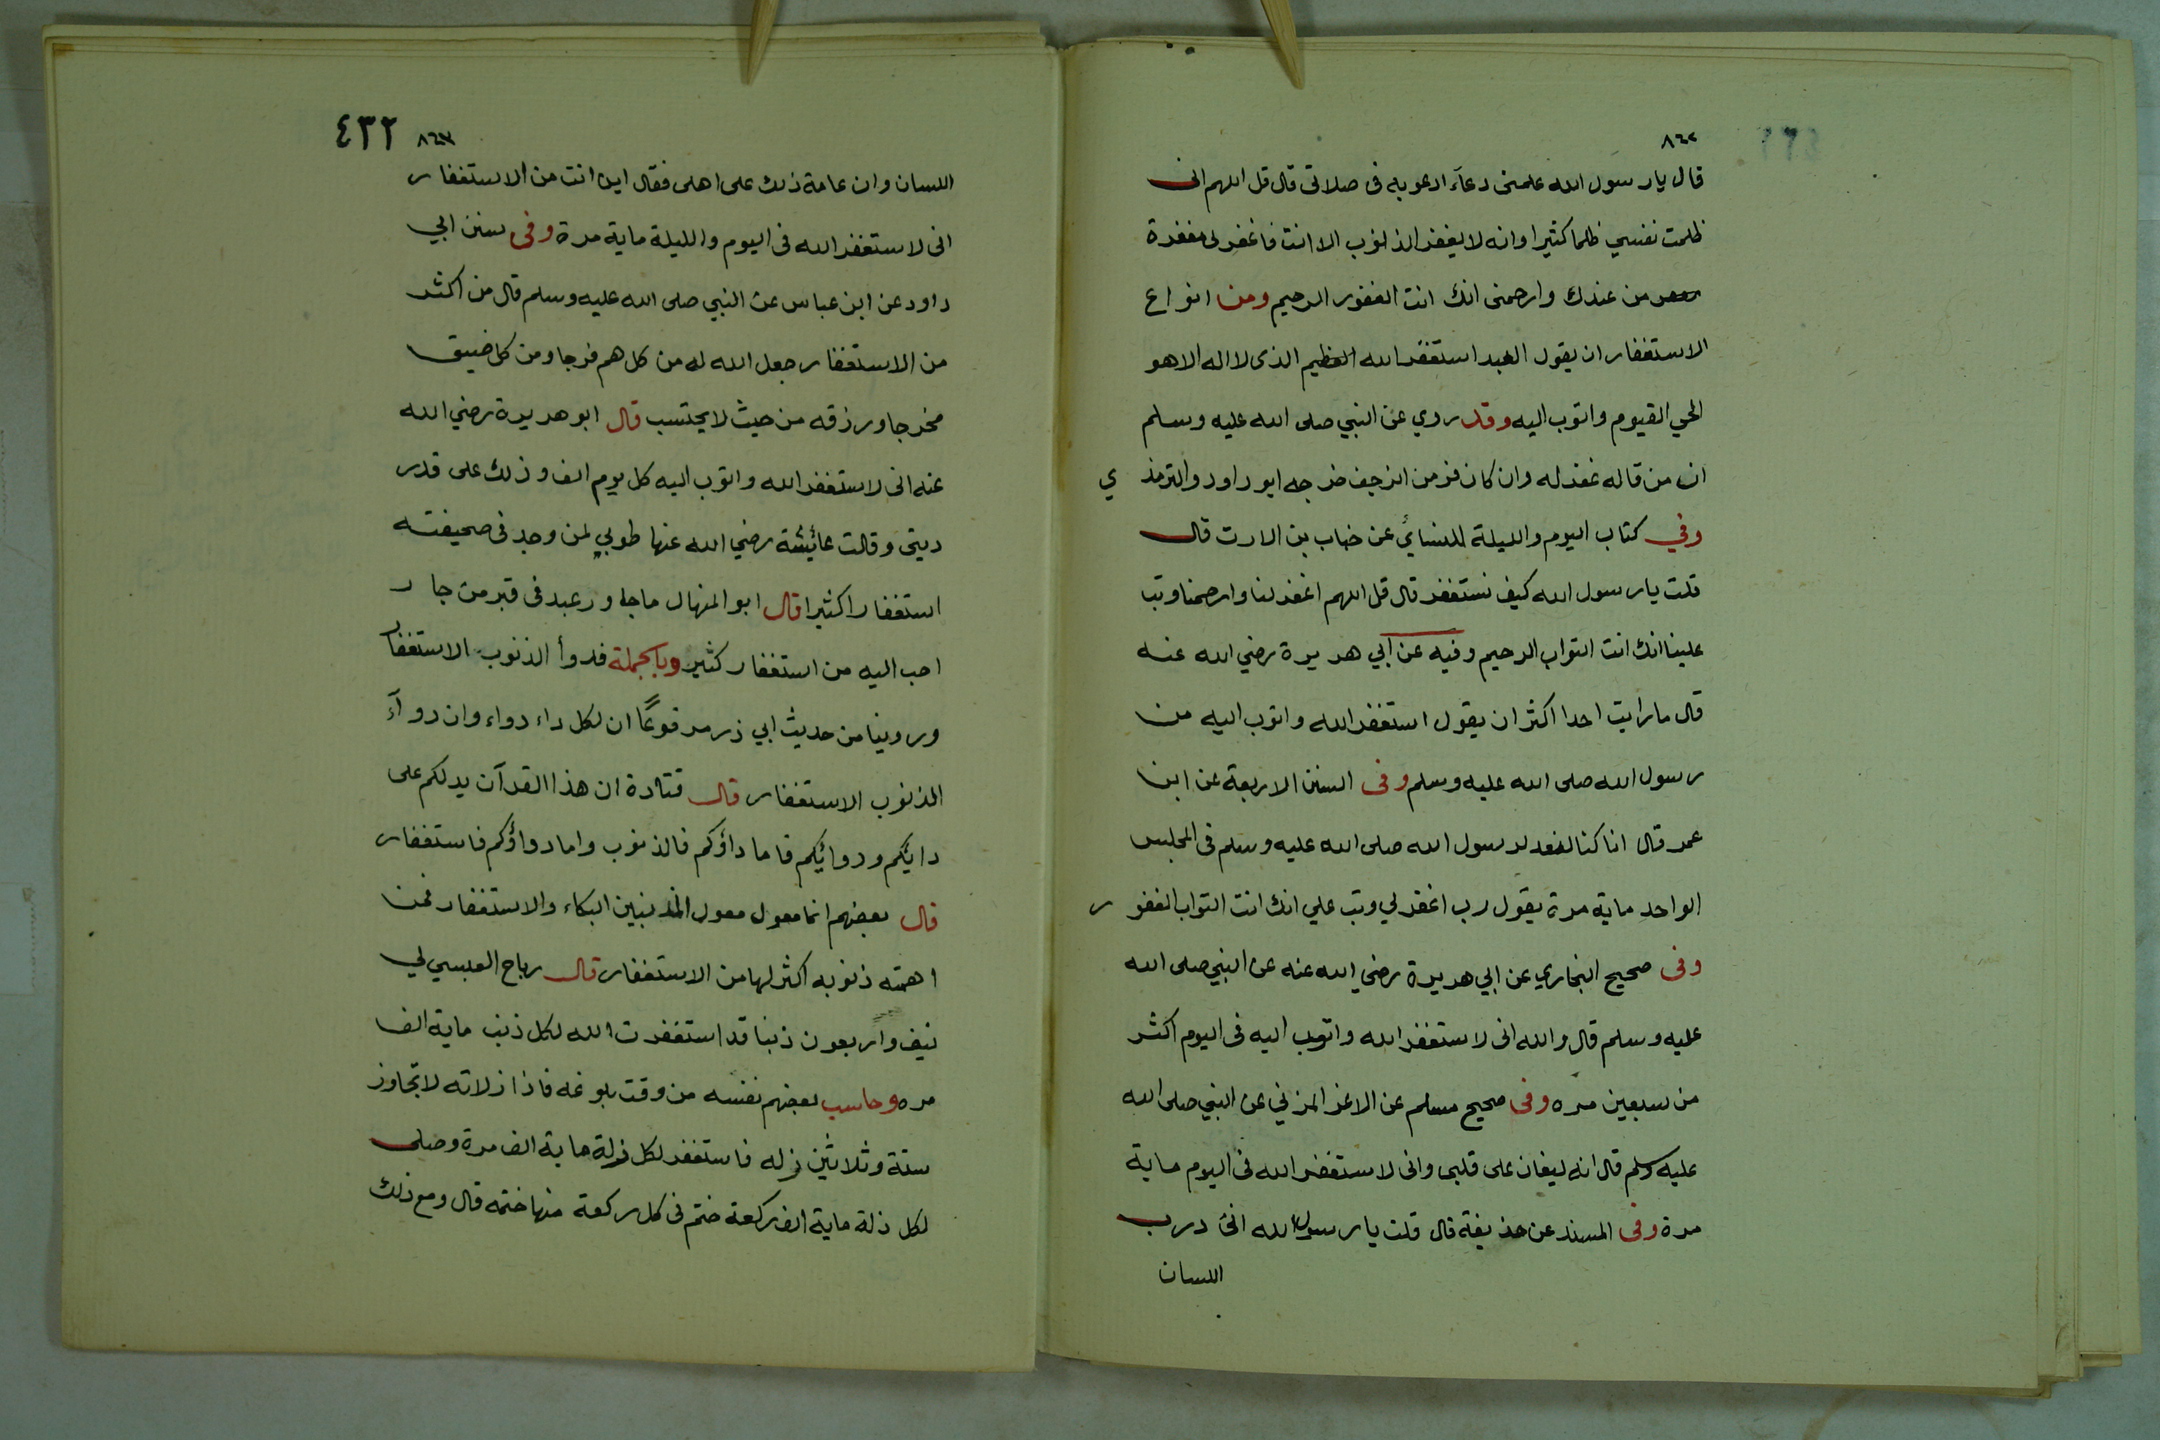 ٨٦٢
قال يا رسول الله علمنى دعآء ادعو به فى صلاتى قال قل اللهم انى
ظلمت نفسي ظلما كثيرا وانه لا يغفر الذنوب الا انت فاغفر لى مغفرة
من عندك وارحمنى انك انت الغفور الرحيم ومن انواع
الاستغفار ان يقول العبد استغفر الله العظيم الذى لا اله الا هو
الحي القيوم واتوب اليه وقد روي عن النبي صلى الله عليه وسلم
ان من قاله غفر له وان كان فر من الزحف خرجه ابو داود والترمذي
وفي كتاب اليوم والليلة للنسائي عن خباب بن الارت قال
قلت يا رسول الله كيف نستغفر قال قل اللهم اغفر لنا وارحمنا وتب
علينا انك انت التواب الرحيم وفيه عن ابي هريرة رضي الله عنه
قال ما رايت احدا اكثر ان يقول استغفر الله واتوب اليه من
رسول الله صلى الله عليه وسلم وفى السنن الاربعة عن ابن
عمر قال انا كنا لنعد لرسول الله صلى الله عليه وسلم فى المجلس
الواحد ماية مرة يقول رب اغفر لي وتب علي انك انت التواب الغفور
وفى صحيح البخاري عن ابي هريرة رضي الله عنه عن النبي صلى الله
عليه وسلم قال والله انى لاستغفر الله واتوب اليه فى اليوم اكثر
من سبعين مره وفى صحيح مسلم عن الاغر المزني عن النبي صلى الله
عليه وسلم قال انه ليغان على قلبى وانى لاستغفر الله فى اليوم ماية
مرة وفى المسند عن حذيفة قال قلت يا رسول الله انى درب
اللسان
٨٦٣ ٤٣٢
اللسان وان عامة ذلك على اهلى فقال اين انت من الاستغفار
انى لاستغفر الله فى اليوم والليلة ماية مرة وفى سنن ابي
داود عن ابن عباس عن النبي صلى الله عليه وسلم قال من اكثر
من الاستغفار جعل الله له من كل هم فرجا ومن كل ضيق
مخرجا ورزقه من حيث لا يحتسب قال ابو هريرة رضي الله
عنه انى لاستغفر الله واتوب اليه كل يوم الف وذلك على قدر
ديتى وقالت عائيشة رضي الله عنها طوبي لمن وجد فى صحيفته
استغفارا كثيرا قال ابو المنهال ما جاور عبد فى قبر من جار
احب اليه من استغفار كثير وبالجملة فدوأ الذنوب الاستغفار
وروينا من حديث ابي ذر مرفوعًا ان لكل داء دواء وان دوآء
الذنوب الاستغفار قال قتادة ان هذا القرآن يدلكم على
دايكم ودوائكم فاما داؤكم فالذنوب واما دواؤكم فاستغفار
قال بعضهم انما معول معول المذنبين البكاء والاستغفار فمن
اهمته ذنوبه اكثر لها من الاستغفار قال رباح القيسي لي
نيف واربعون ذنبا قد استغفرت الله لكل ذنب ماية الف
مره وحاسب بعضهم نفسه من وقت بلوغه فاذا زلاته لا تجاوز
ستة وثلاثين زله فاستغفر لكل زلة ماية الف مرة وصلى
لكل ذلة ماية الف ركعة ختم فى كل ركعة منها ختمه قال ومع ذلك